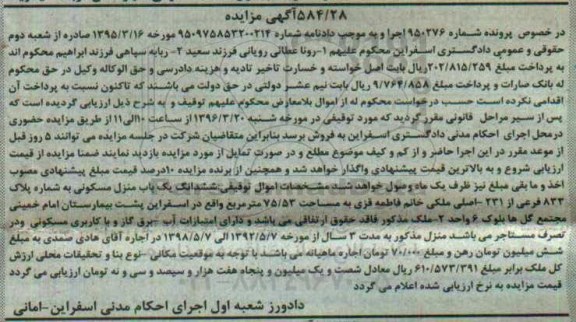 ۵۸۴/۲۸آگهی مزایده
در خصوص پرونده شماره ۹۵۰۲۷۶ اجرا و به موجب دادنامه شماره ۹۵۰۹۹۷۵۸۵۳۲۰۰۲۱۴ مورخه ۱۳۹۵/۳/۱۶ صادره از شعبه دوم
حقوقی و عمومی دادگستری اسفراین محکوم علیهم ۱-رونا عطائی رویانی فرزند سعید ۲- ربابه سپاهی فرزند ابراهیم محکوم اند
به پرداخت مبلغ ۲۰۲/۸۱۵/۲۵۹ریال بابت اصل خواسته و خسارت تاخیر تادیه و هزینه دادرسی و حق الوکاله وکیل در حق محکوم
له بانک صادرات و پرداخت مبلغ ۹/۷۶۴/۸۵۸ ریال بابت نیم عشر دولتی در حق دولت می باشند که تاکنون نسبت به پرداخت آن
اقدامی نکرده است حسب درخواست محکوم له از اموال بلامعارض محکوم علیهم توقیف و به شرح ذیل ارزیابی گردیده است که
پس از سیر مراحل قانونی مقرر گردید که مورد توقیفی در مورخه شنبه ۱۳۹۶/۳/۲۰ از ساعت ۱۰الی۱۱ از طریق مزایده حضوری
درمحل اجرای احکام مدنی دادگستری اسفراین به فروش برسد بنابراین متقاضیان شرکت در جلسه مزایده می توانند ۵ روز قبل
از موعد مقرر در این اجرا حاضر و از کم و کیف موضوع مطلع و در صورت تمایل از مورد مزایده بازدید نمایند ضمنا مزایده از قیمت
ارزیابی شروع و به بالاترین قیمت پیشنهادی واگذار خواهد شد و همچنین از برنده مزایده ۱۰درصد قیمت مبلغ پیشنهادی مصوب
اخذ و ما بقی مبلغ نیز ظرف یک ماه وصول خواهد شد مشخصات اموال توقیفی ششدانگ یک باب منزل مسکونی به شماره پلاک
۸۳۳ فرعی از ۲۳۱ -اصلی ملکی خانم فاطمه قزی به مساحت ۷۵/۵۳ مترمربع واقع در اسفراین پشت بیمارستان امام خمینی
مجتمع گل ها بلوک ۶ واحد ۲-ملک مذکور فاقد حقوق ارتفاقی می باشد و دارای امتیازات آب -برق گاز و با کاربری مسکونی ودر
تصرف مستاجر می باشد منزل مذکور به مدت ۳ سال از مورخه ۱۳۹۲/۵/۷الی ۱۳۹۸/۵/۷ در اجاره آقای هادی صمدی به مبلغ
شش میلیون تومان رهن و مبلغ ۷۰/۰۰۰ تومان اجاره ماهیانه می باشد با توجه به موقعیت مکانی -نوع بنا و تحقیقات محلی ارزش
کل ملک برابر مبلغ ۶۱۰/۵۷۳/۳۹۱ ریال معادل شصت و یک میلیون و پنجاه هفت هزار و سیصد و سی و نه تومان ارزیابی می گردد
قیمت مزایده به نرخ ارزیابی شده اعلام می گردد
دادورز شعبه اول اجرای احکام مدنی اسفراین-امانی